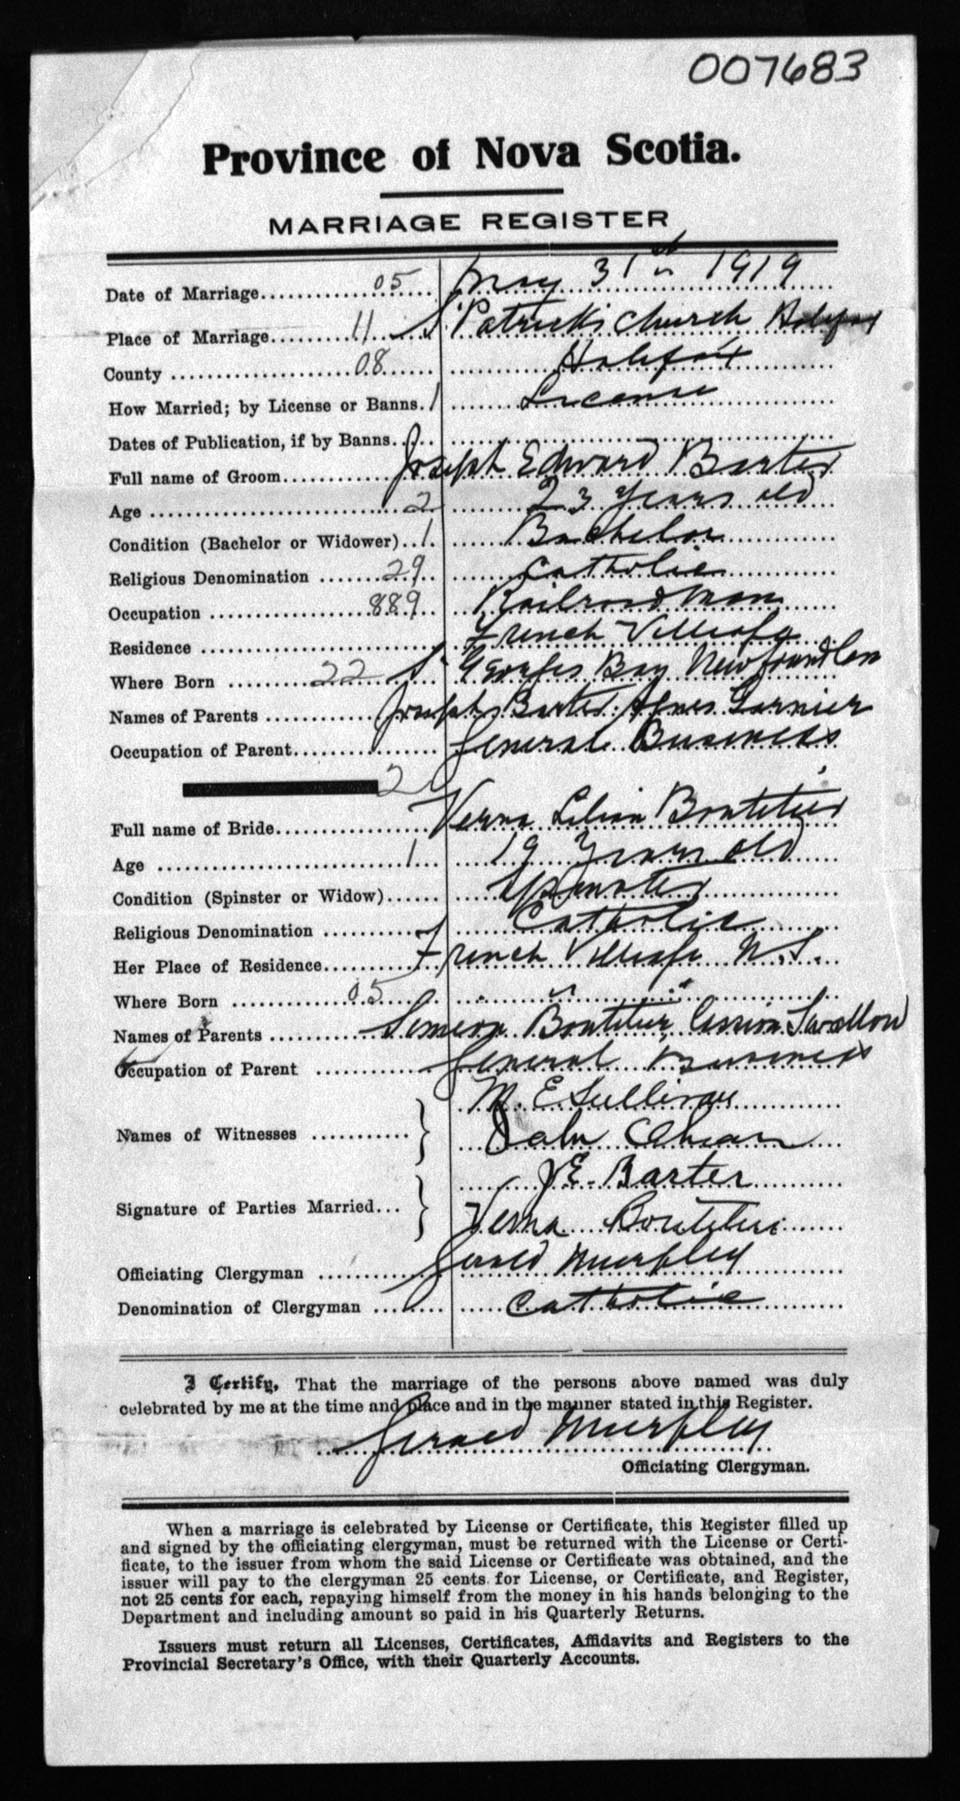 007683
Province of Nova Scotia.
MARRIAGE REGISTER
Date of Marriage 05 May 31st 1919
Place of Marriage 11 St Patrick's Church Halifax
County 08 Halifax
How Married; by License or Banns. 1 License
Dates of Publication, if by Banns
Full name of Groom Joseph Edward Barter
Age 2 23 Years old
Condition (Bachelor or Widower) 1 Bachelor
Religious Denomination 29 Catholic
Occupation 889 Railroad Man
Residence French Village
Where Born 22 St Georges Bay Newfoundlan
Names of Parents Joseph Barter Agnes Garnier
Occupation of Parent General Business
2
Full name of Bride Verna Lilian Boutilier
Age 1 19 Years old
Condition (Spinster or Widow) Spinster
Religious Denomination Catholic
Her Place of Residence French Village N.S.
Where Born 05 " " "
Names of Parents Simeon Boutilier Swallow
Occupation of Parent General Business
M. E Sullivan
Names of Witnesses John
J E. Barter
Signature of Parties Married
Verna Boutilier
Officiating Clergyman Gerald Murphy
Denomination of Clergyman Catholic
I Certify, That the marriage of the persons above named was duly
celebrated by me at the time and place and in the manner stated in this Register.
Gerald Murphy
Officiating Clergyman.
When a marriage is celebrated by License or Certificate, this Register filled up
and signed by the officiating clergyman, must be returned with the License or Certi-
ficate, to the issuer from whom the said License or Certificate was obtained, and the
issuer will pay to the clergyman 25 cents for License, or Certificate, and Register,
not 25 cents for each, repaying himself from the money in his hands belonging to the
Department and including amount so paid in his Quarterly Returns.
Issuers must return all Licenses, Certificates, Affidavits and Registers to the
Provincial Secretary's Office, with their Quarterly Accounts.